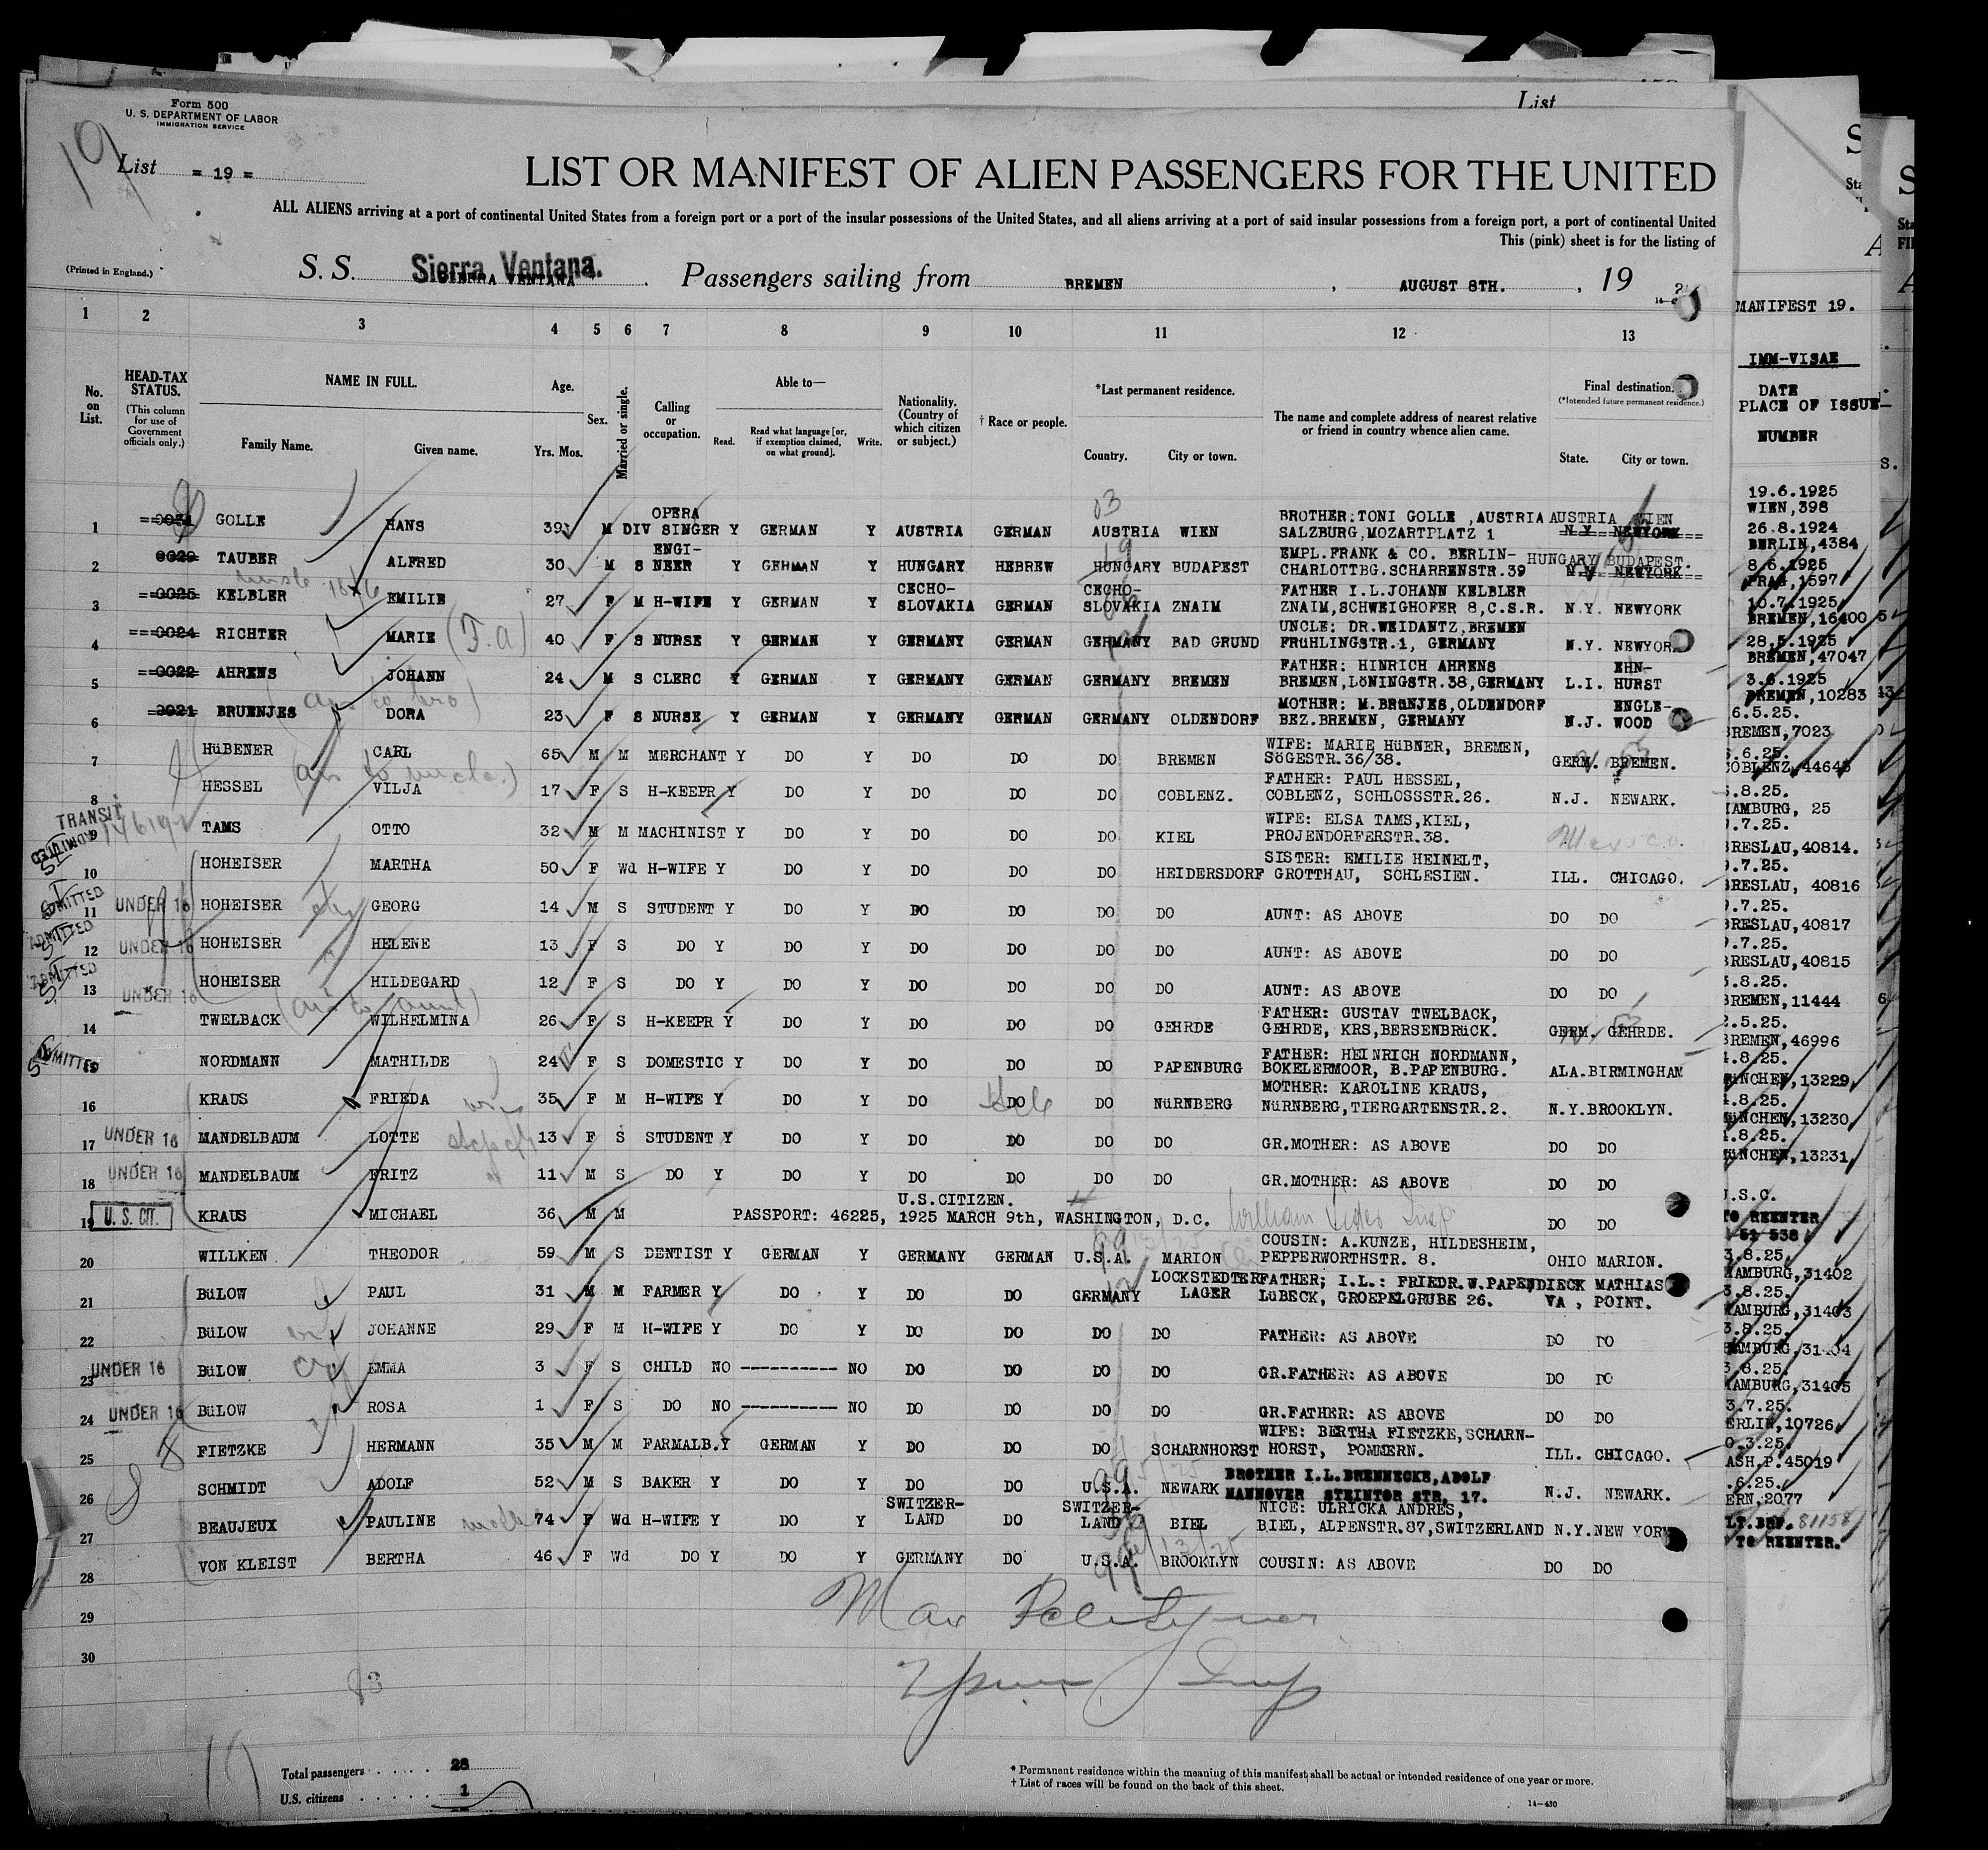 List
Form 500
U. S. DEPARTMENT OF LABOR
IMMIGRATION SERVICE
19
List = 19 =
LIST OR MANIFEST OF ALIEN PASSENGERS FOR THE UNITED
ALL ALIENS arriving at a port of continental United States from a foreign port or a port of the insular possessions of the United States, and all aliens arriving at a port of said insular possessions from a foreign port, a port of continental United
This (pink) sheet is for the listing of
(Printed in England.)
S. S. Sierra Ventana. Passengers sailing from BREMEN, AUGUST 8TH., 19
1 2 3 4 5 6 7 8 9 10 11 12 13
No. on List. HEAD-TAX STATUS. (This column for use of Government officials only.) NAME IN FULL. Family Name. Given name. Age. Yrs. Mos. Sex. Married or single. Calling or occupation. Able to— Read. Read what language [or, if exemption claimed, on what ground]. Write. Nationality. (Country of which citizen or subject.) † Race or people. *Last permanent residence. Country. City or town. The name and complete address of nearest relative or friend in country whence alien came. Final destination. (*Intended future permanent residence.) State. City or town.
MANIFEST 19.
IMM-VISAE
DATE
PLACE OF ISSUE
NUMBER
1 GOLLE HANS 39 M DIV OPERA SINGER Y GERMAN Y AUSTRIA GERMAN AUSTRIA WIEN BROTHER:TONI GOLLE ,AUSTRIA SALZBURG,MOZARTPLATZ 1 AUSTRIA WIEN N.Y. NEWYORK
2 0029 TAUBER ALFRED 30 M S ENGI-NEER Y GERMAN Y HUNGARY HEBREW HUNGARY BUDAPEST EMPL.FRANK & CO. BERLIN-CHARLOTTBG.SCHARRENSTR.39 HUNGARY BUDAPEST. N.Y. NEWYORK
3 0025 KELBLER EMILIE 27 F M H-WIFE Y GERMAN Y CECHO-SLOVAKIA GERMAN CECHO-SLOVAKIA ZNAIM FATHER I.L.JOHANN KELBLER ZNAIM,SCHWEIGHOFER 8,C.S.R. N.Y. NEWYORK
4 0024 RICHTER MARIE 40 F S NURSE Y GERMAN Y GERMANY GERMAN GERMANY BAD GRUND UNCLE: DR.WEIDANTZ,BREMEN FRüHLINGSTR.1, GERMANY N.Y. NEWYOR
5 0022 AHRENS JOHANN 24 M S CLERC Y GERMAN Y GERMANY GERMAN GERMANY BREMEN FATHER: HINRICH AHRENS BREMEN,LöNINGSTR.38,GERMANY L.I. EHN-HURST
6 0021 BRUENJES DORA 23 F S NURSE Y GERMAN Y GERMANY GERMAN GERMANY OLDENDORF MOTHER: M.BRüNJES,OLDENDORF BEZ.BREMEN, GERMANY N.J. ENGLE-WOOD
7 HüBENER CARL 65 M M MERCHANT Y DO Y DO DO DO BREMEN WIFE: MARIE HüBNER, BREMEN, SöGESTR.36/38. GERM. BREMEN.
8 HESSEL VILJA 17 F S H-KEEPR Y DO Y DO DO DO COBLENZ. FATHER: PAUL HESSEL, COBLENZ, SCHLOSSSTR.26. N.J. NEWARK.
TRANSIT
9 TAMS OTTO 32 M M MACHINIST Y DO Y DO DO DO KIEL WIFE: ELSA TAMS,KIEL, PROJENDORFERSTR.38. Mexico.
ADMITTED
10 HOHEISER MARTHA 50 F Wd H-WIFE Y DO Y DO DO DO HEIDERSDORF SISTER: EMILIE HEINELT, GROTTHAU, SCHLESIEN. ILL. CHICAGO.
ADMITTED
11 UNDER 16 HOHEISER GEORG 14 M S STUDENT Y DO Y DO DO DO DO AUNT: AS ABOVE DO DO
ADMITTED
12 UNDER 16 HOHEISER HELENE 13 F S DO Y DO Y DO DO DO DO AUNT: AS ABOVE DO DO
ADMITTED
13 UNDER 16 HOHEISER HILDEGARD 12 F S DO Y DO Y DO DO DO DO AUNT: AS ABOVE DO DO
14 TWELBACK WILHELMINA 26 F S H-KEEPR Y DO Y DO DO DO GEHRDE FATHER: GUSTAV TWELBACK, GEHRDE, KRS,BERSENBRüCK. GERM. GEHRDE.
ADMITTED
15 NORDMANN MATHILDE 24 F S DOMESTIC Y DO Y DO DO DO PAPENBURG FATHER: HEINRICH NORDMANN, BOKELERMOOR, B.PAPENBURG. ALA.BIRMINGHAM
16 KRAUS FRIEDA 35 F M H-WIFE Y DO Y DO DO DO NüRNBERG MOTHER: KAROLINE KRAUS, NüRNBERG,TIERGARTENSTR.2. N.Y.BROOKLYN.
17 UNDER 16 MANDELBAUM LOTTE 13 F S STUDENT Y DO Y DO DO DO DO GR.MOTHER: AS ABOVE DO DO
18 UNDER 16 MANDELBAUM FRITZ 11 M S DO Y DO Y DO DO DO DO GR.MOTHER: AS ABOVE DO DO
19 U. S. CIT. KRAUS MICHAEL 36 M M U.S.CITIZEN. PASSPORT: 46225, 1925 MARCH 9th, WASHINGTON, D.C. DO DO
20 WILLKEN THEODOR 59 M S DENTIST Y GERMAN Y GERMANY GERMAN U.S.A. MARION COUSIN: A.KUNZE, HILDESHEIM, PEPPERWORTHSTR. 8. OHIO MARION.
21 BüLOW PAUL 31 M M FARMER Y DO Y DO DO GERMANY LOCKSTEDTER LAGER FATHER; I.L.: FRIEDR.W.PAPENDIECK LüBECK, GROEPELGRUBE 26. VA , MATHIAS POINT.
22 BüLOW JOHANNE 29 F M H-WIFE Y DO Y DO DO DO DO FATHER: AS ABOVE DO DO
23 UNDER 16 BüLOW EMMA 3 F S CHILD NO ---------- NO DO DO DO DO GR.FATHER: AS ABOVE DO DO
24 UNDER 16 BüLOW ROSA 1 F S DO NO ---------- NO DO DO DO DO GR.FATHER: AS ABOVE DO DO
25 FIETZKE HERMANN 35 M M FARMALB.Y GERMAN Y DO DO DO SCHARNHORST WIFE: BERTHA FIETZKE,SCHARN-HORST, POMMERN. ILL. CHICAGO.
26 SCHMIDT ADOLF 52 M S BAKER Y DO Y DO DO U.S.A. NEWARK BROTHER I.L.BRENNECKE,ADOLF HANNOVER STEINTOR STR, 17. N.J. NEWARK.
27 BEAUJEUX PAULINE 74 F Wd H-WIFE Y DO Y SWITZER-LAND DO SWITZER-LAND BIEL NICE: ULRICKA ANDRES, BIEL, ALPENSTR.87,SWITZERLAND N.Y.NEW YORK
28 VON KLEIST BERTHA 46 F Wd DO Y DO Y GERMANY DO U.S.A. BROOKLYN COUSIN: AS ABOVE DO DO
29
30
19.6.1925
WIEN,398
26.8.1924
BERLIN,4384
8.6.1925
PRAG,1597
10.7.1925
BREMEN,16400
28.5.1925
BREMEN,47047
3.6.1925
BREMEN,10283
6.5.25.
BREMEN,7023
.6.25.
COBLENZ,44645
.8.25.
HAMBURG, 25
.7.25.
BRESLAU,40814.
.7.25.
BRESLAU, 40816
.7.25.
BRESLAU,40817
.7.25.
BRESLAU,40815
.8.25.
BREMEN,11444
2.5.25.
BREMEN,46996
.8.25.
MüNCHEN,13229
.8.25.
MüNCHEN,13230
.8.25.
MüNCHEN,13231
U.S.C.
TO REENTER
3.8.25.
HAMBURG,31402
3.8.25.
HAMBURG,31403
3.8.25.
HAMBURG,31404
3.8.25.
HAMBURG,31405
3.7.25.
ERLIN,10726
0.3.25.
ASH.P.45019
.6.25.
ERN,2077
81158
TO REENTER.
83
Total passengers . . . . . . 28
U.S. citizens . . . . . . 1
* Permanent residence within the meaning of this manifest shall be actual or intended residence of one year or more.
† List of races will be found on the back of this sheet.
14—430